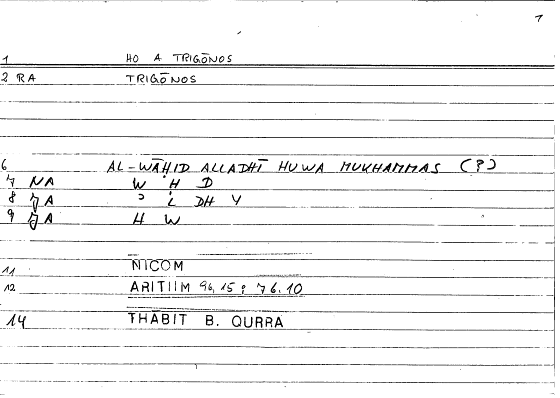 7
1 HO A TRIGŌNOS
2 RA TRIGŌNOS
6 AL-WĀḤID ALLADHĪ HUWA MUKHAMMAS (?)
7 NA W Ḥ D
8 JA ʾ L DH Y
9 JA H W
11 NICOM
12 ARITIIM 96,15 ; 76.10
14 THĀBIT B. QURRA